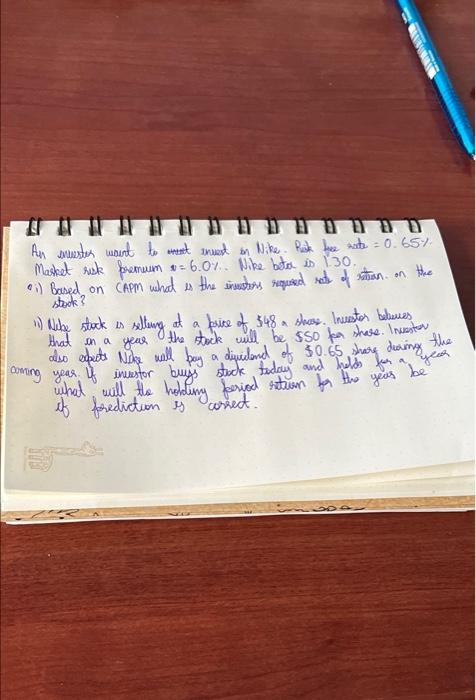 An investor want to invest in Nike. Risk free rate = 0.65%.
Market risk premium = 6.0%. Nike beta is 1.30.
i) Based on CAPM what is the investors required rate of return on the
stock?
ii) Nike stock is selling at a price of $48 a share. Investor believes
that in a year the stock will be $50 per share. Investor
also expects Nike will pay a dividend of $0.65 share during the
coming year. If investor buys stock today and holds for a year
what will the holding period return for the year be
if prediction is correct.